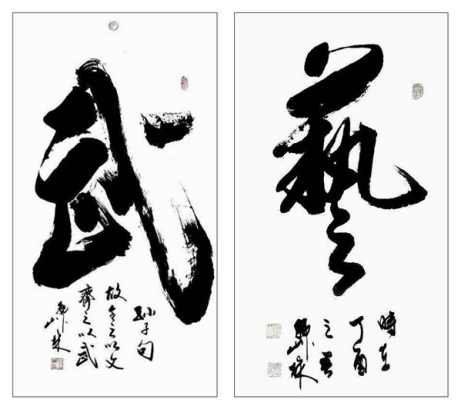 武
孙子句
故令之以文
齊之以武
藝
時在
丁酉
之春